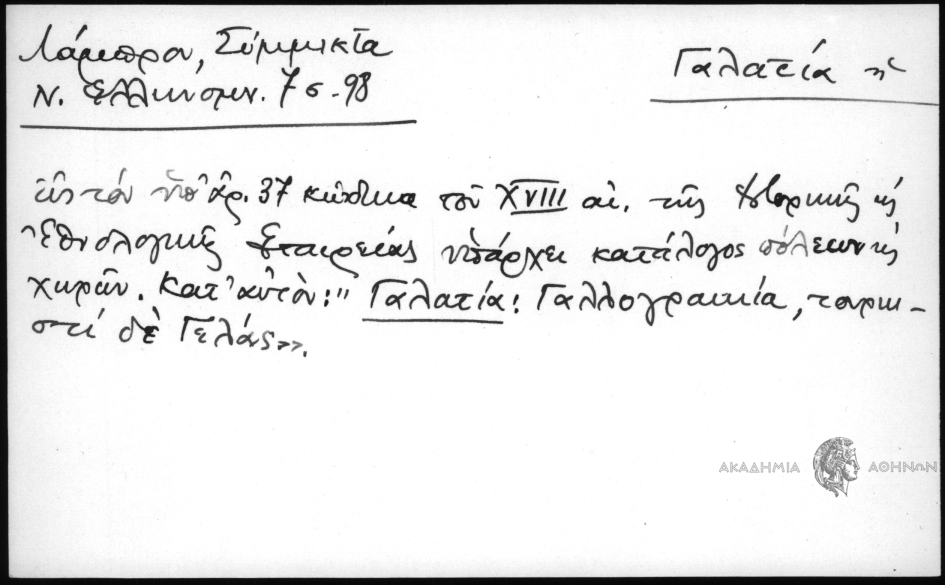 Λάμπρου, Σύμμικτα
Ν. Ελληνομν. 7 σ. 98
Γαλατία ἡ
εἰς τὸν ὑπ' ἀρ. 37 κώδικα τοῦ XVIII αἰ. τῆς Ἱστορικῆς κ̀
Ἐθνολογικῆς Εταιρείας ὑπάρχει κατάλογος πόλεων κ̀
χωρῶν. Κατ' αὐτὸν: "Γαλατία: Γαλλογραικία, τουρκι-
στί δὲ Γελάς».
ΑΚΑΔΗΜΙΑ ΑΘΗΝΩΝ